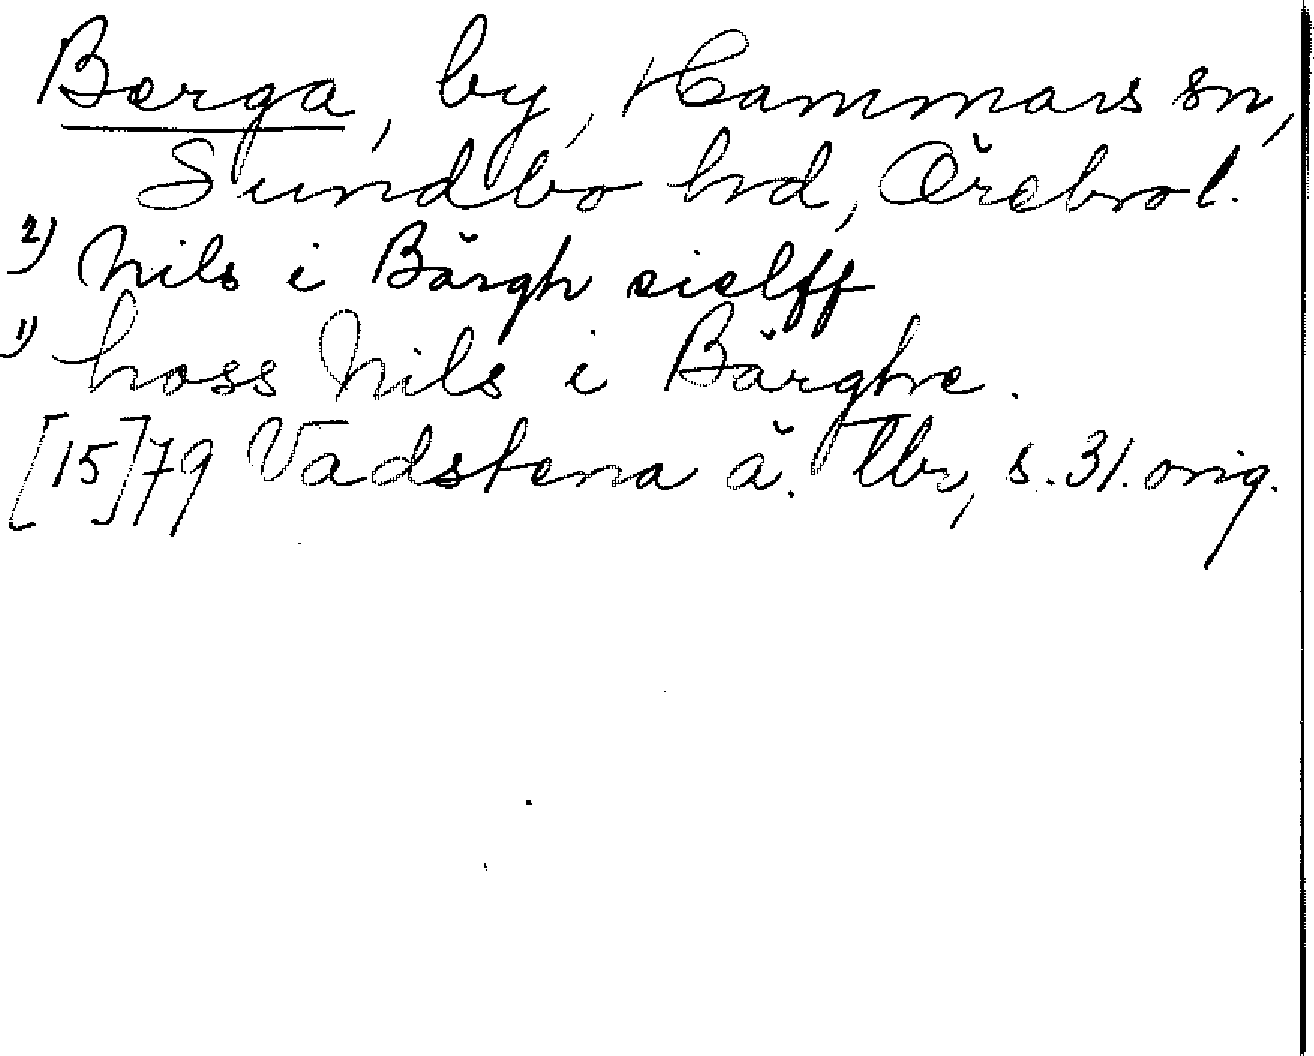 Berga, by, Hammars sn,
Sundbo hd, Örebro l.
2) Nils i Bärgh sielff
1) hoss Nils i Bärghe.
[15]79 Vadstena ä. Tbr, s. 31. orig.